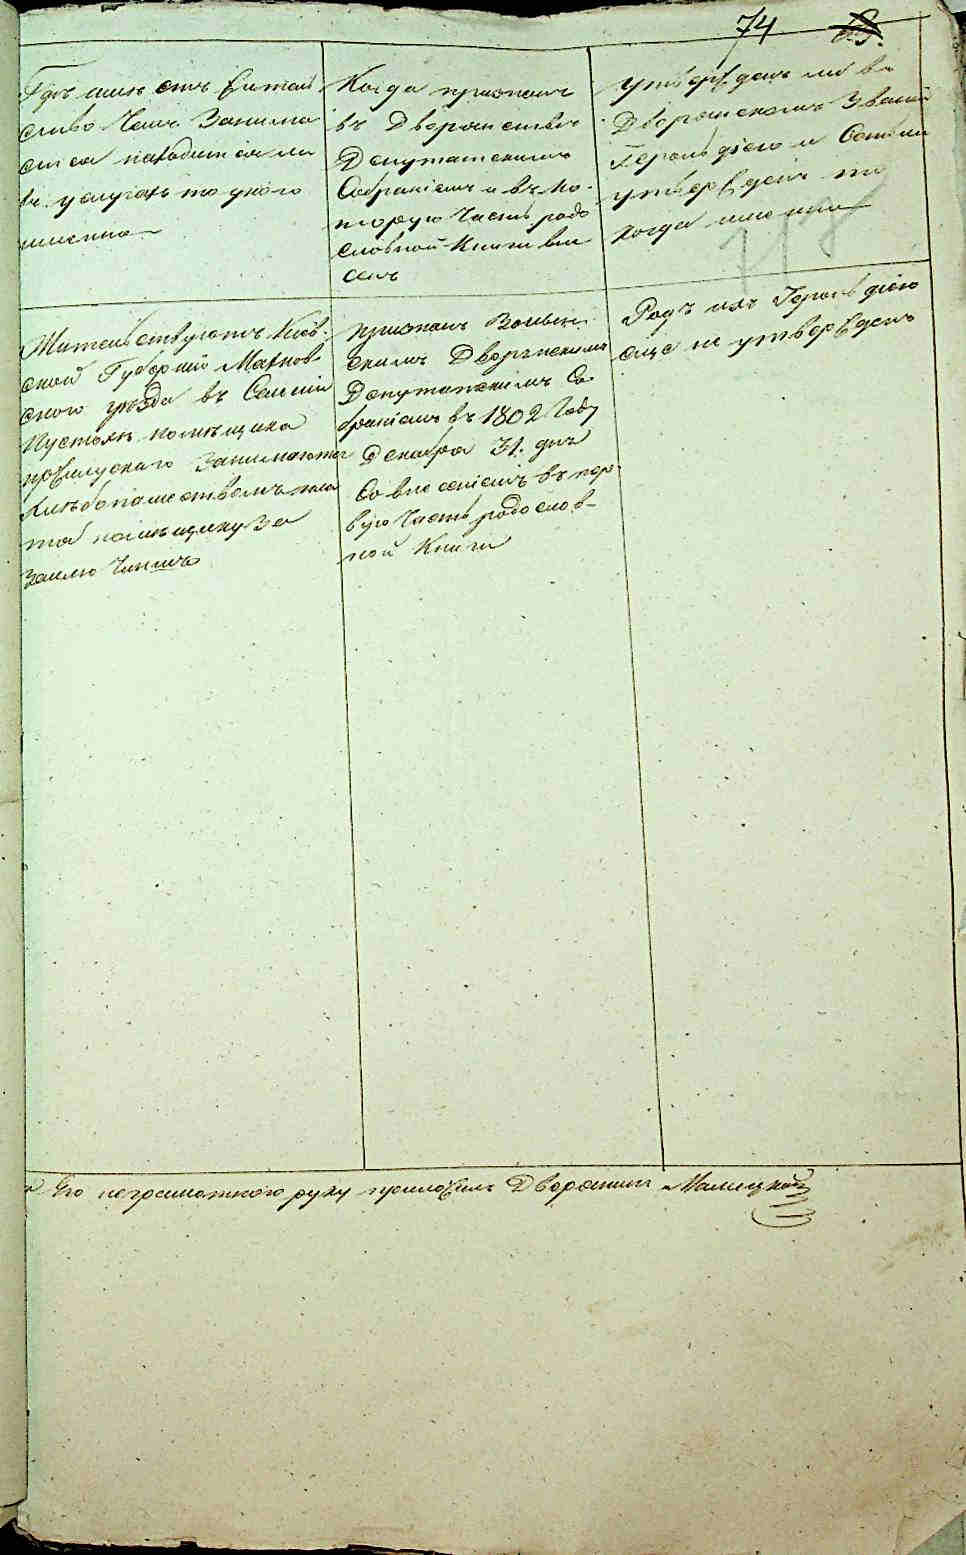 74
Гдѣ имѣетъ жител
ство Чемъ Занима
ется находится ли
въ услугахъ то укого
именно
Когда признанъ
въ Дворянствѣ
Депутатскимъ
Собраніемъ и въ ко-
торую Часть родо
словной Книги вне
сенъ
Утвержденъ ли въ
Дворянскомъ Званіи
Герольдіею и Если
утвержденъ то
когда именно
Жительствуютъ Кіев-
ской Губерніи Махнов
ского уѣзда въ Селеніи
помѣщика
Занимаются
хлѣбопашествомъ
помѣщику За
Землю Чиншъ
признанъ Волын-
скимъ Дворянскимъ
Депутатскимъ Со
браніемъ въ 1802 Году
Декабря 31. дня
Со внесеніемъ въ пер-
вую Часть родослов-
ной Книги
Родъ ихъ Герольдіею
еще не утвержденъ
Его неграмотного руку приложилъ Дворянинъ